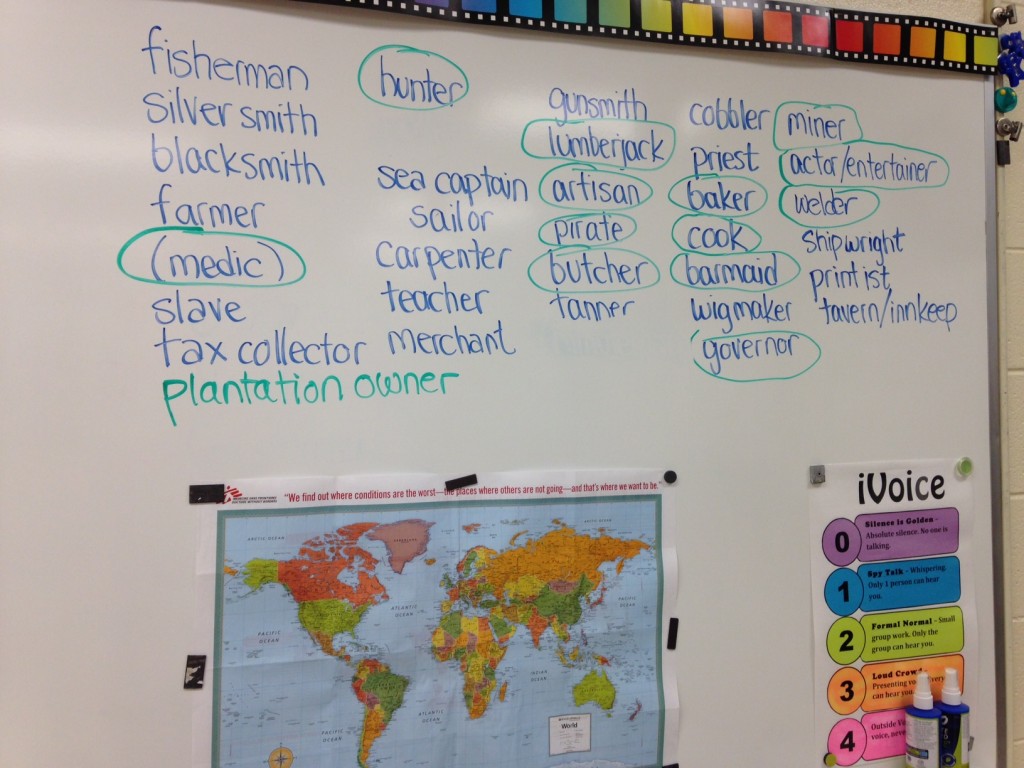 fisherman
silver smith
blacksmith
farmer
(medic)
slave
tax collector
plantation owner
hunter
sea captain
sailor
carpenter
teacher
merchant
gunsmith
lumberjack
artisan
pirate
butcher
tanner
cobbler
priest
baker
cook
barmaid
wigmaker
governor
miner
actor/entertainer
welder
shipwright
printist
tavern/innkeep
"We find out where conditions are the worst—the places where others are not going—and that's where we want to be."
ARCTIC OCEAN
ARCTIC OCEAN
ATLANTIC OCEAN
PACIFIC OCEAN
PACIFIC OCEAN
INDIAN OCEAN
ATLANTIC OCEAN
PACIFIC OCEAN
World
iVoice
0
Silence is Golden -
Absolute silence. No one is
talking.
1
Spy Talk - Whispering
Only 1 person can hear
you.
2
Formal Normal - Small
group work. Only the
group can hear you.
3
Loud Crowd
Presenting
can hear you
4
Outside
voice, never